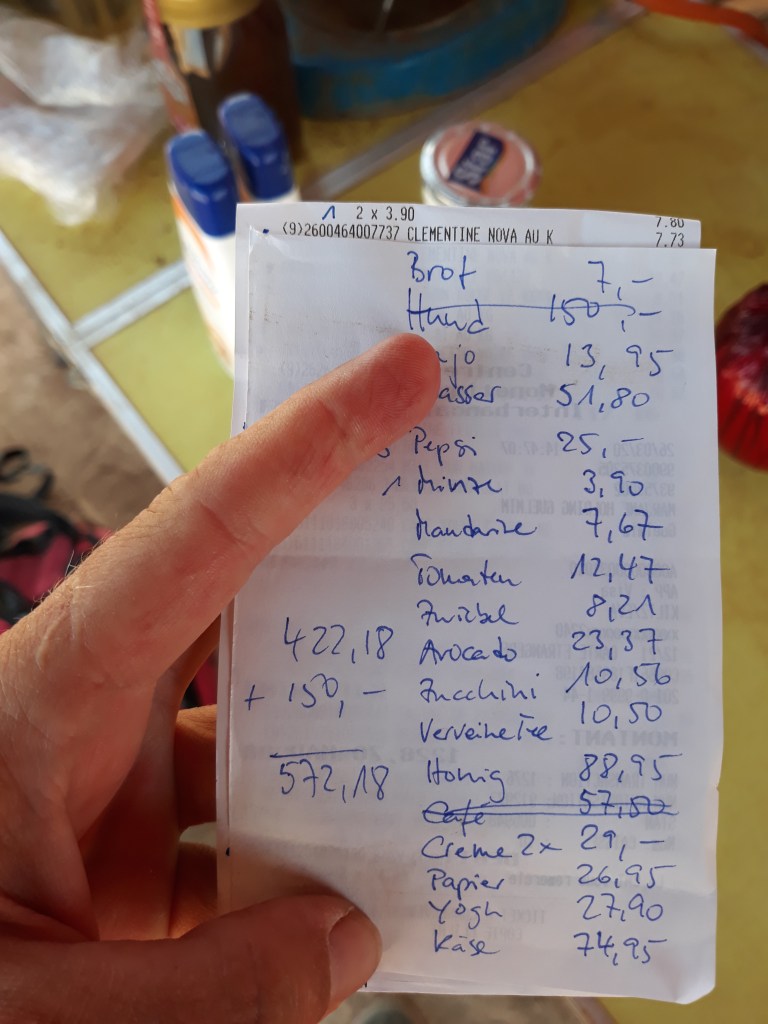 Star
1 2 x 3.90 7.80
(9)2600464007737 CLEMENTINE NOVA AU K 7.73
Brot 7,-
Hund 150,-
jo 13,95
asser 51,80
Pepsi 25,-
1 Minze 3,90
Mandarine 7,67
Tomaten 12,47
Zwiebel 8,21
Avocado 23,37
Zucchini 10,56
Verveine Tee 10,50
Honig 88,95
Café 57,50
Creme 2x 29,-
Papier 26,95
Yogh 27,90
Käse 74,95
422,18
+ 150,-
572,18